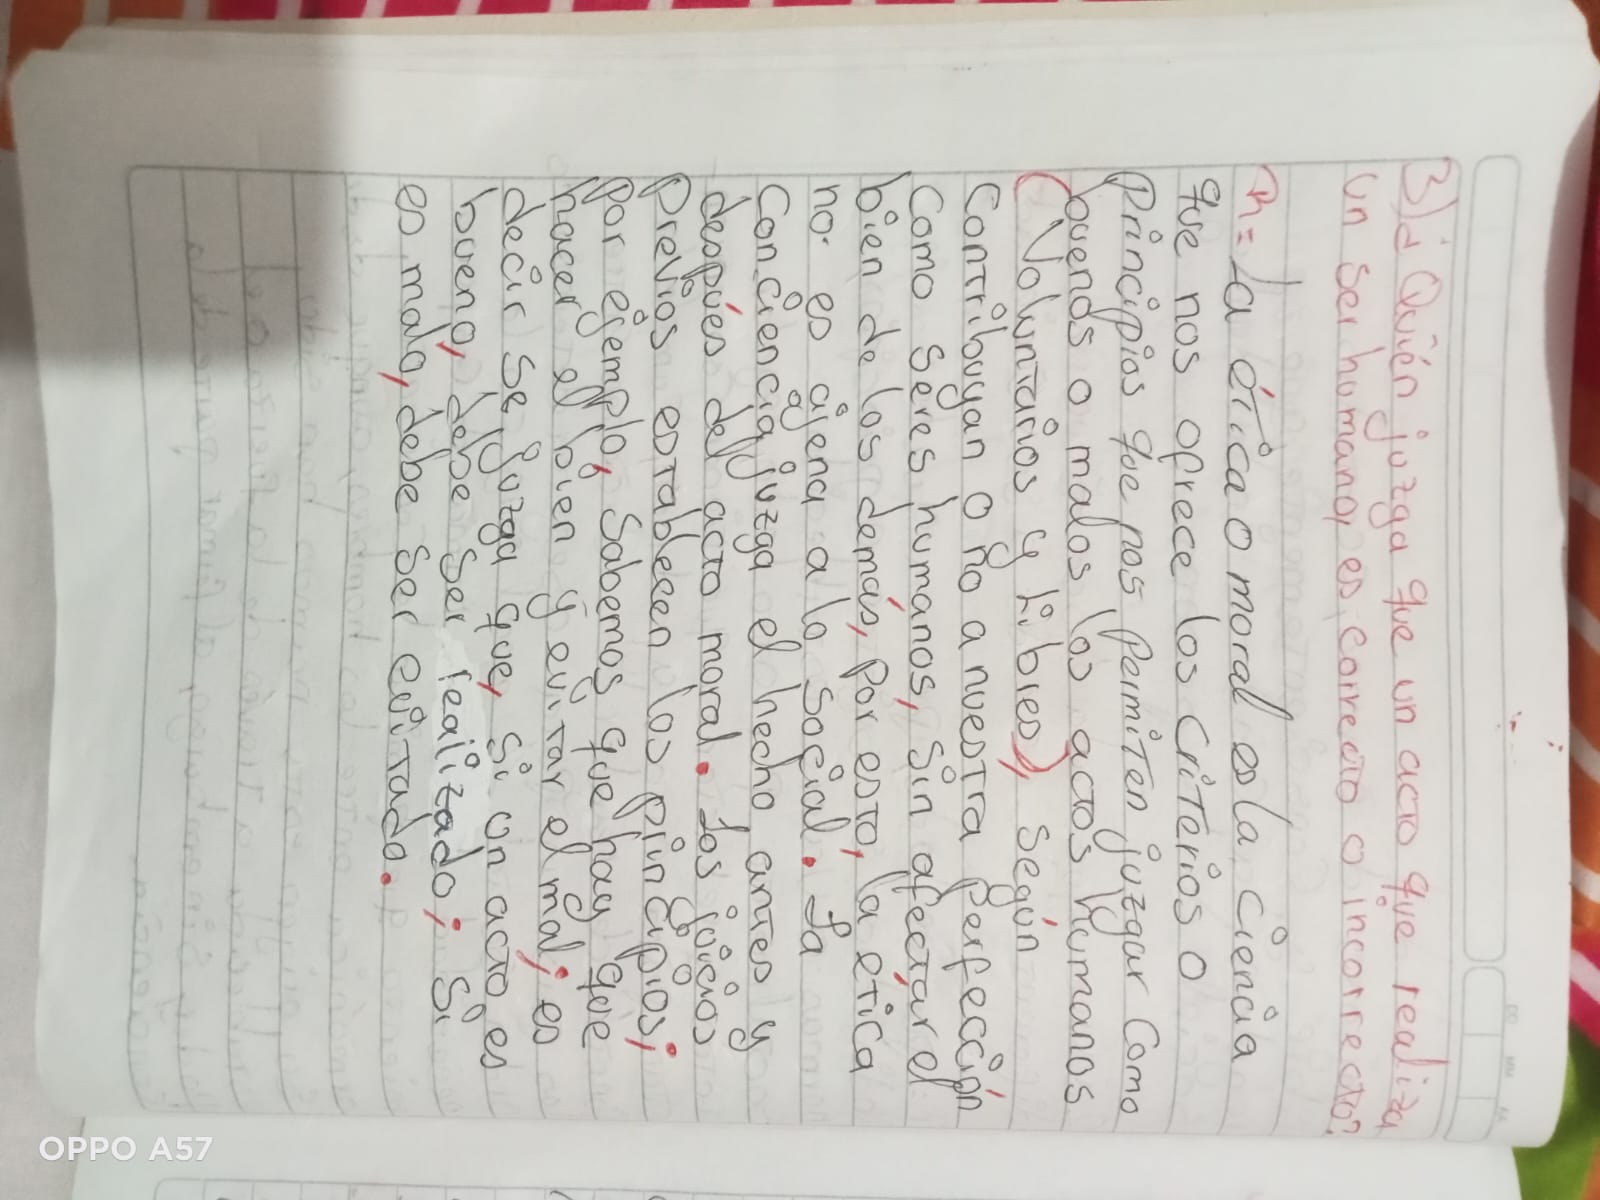 3) ¿Quién juzga que un acto que realiza
un ser humano, es correcto o incorrecto?
R= La ética o moral es la ciencia
que nos ofrece los criterios o
principios que nos permiten juzgar como
buenos o malos los actos humanos
(Voluntarios y Libres), según
contribuyan o no a nuestra perfección
como seres humanos, sin afectar el
bien de los demás, por esto, la etica
no es ajena a lo social. La
conciencia juzga el hecho antes y
después del acto moral. Los juicios
previos establecen los principios;
por ejemplo, sabemos que hay que
hacer el bien y evitar el mal; es
decir se juzga que, si un acto es
bueno, debe ser realizado; si
es malo, debe ser evitado.
OPPO A57